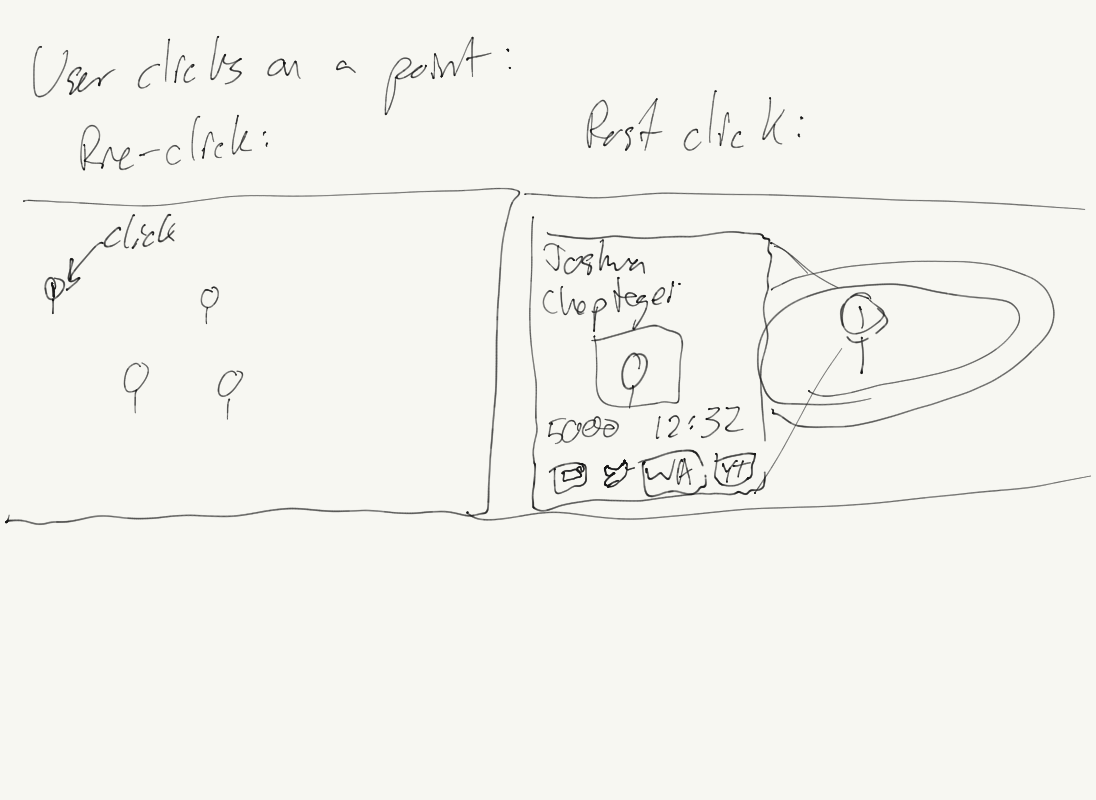 User clicks on a point:
Pre-click:
Post click:
click
Joshua
Cheptegei
5000 12:32
WA YT